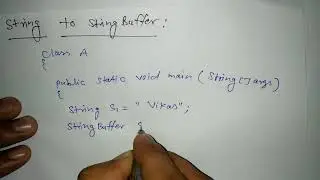 String to StringBuffer :
Class A
{
public static void main ( String [] args )
{
String S1 = " Vikas" ;
StringBuffer S